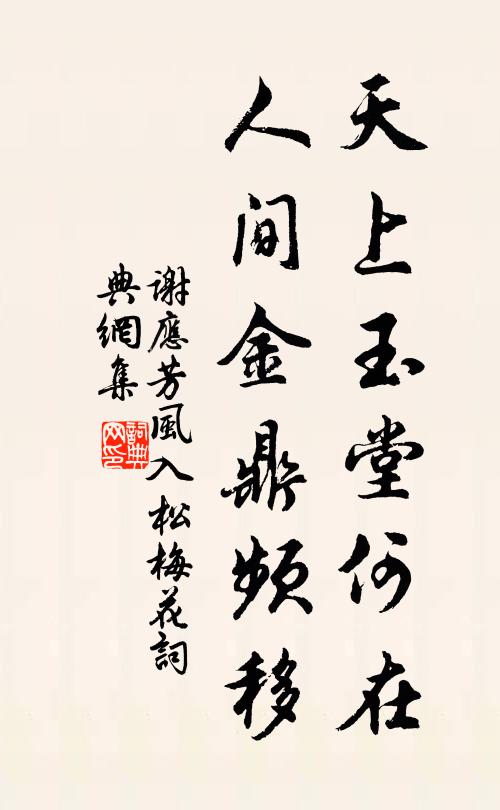 天上玉堂何在
人间金鼎频移
谢應芳風入松梅花詞
典網集
詞典
网印